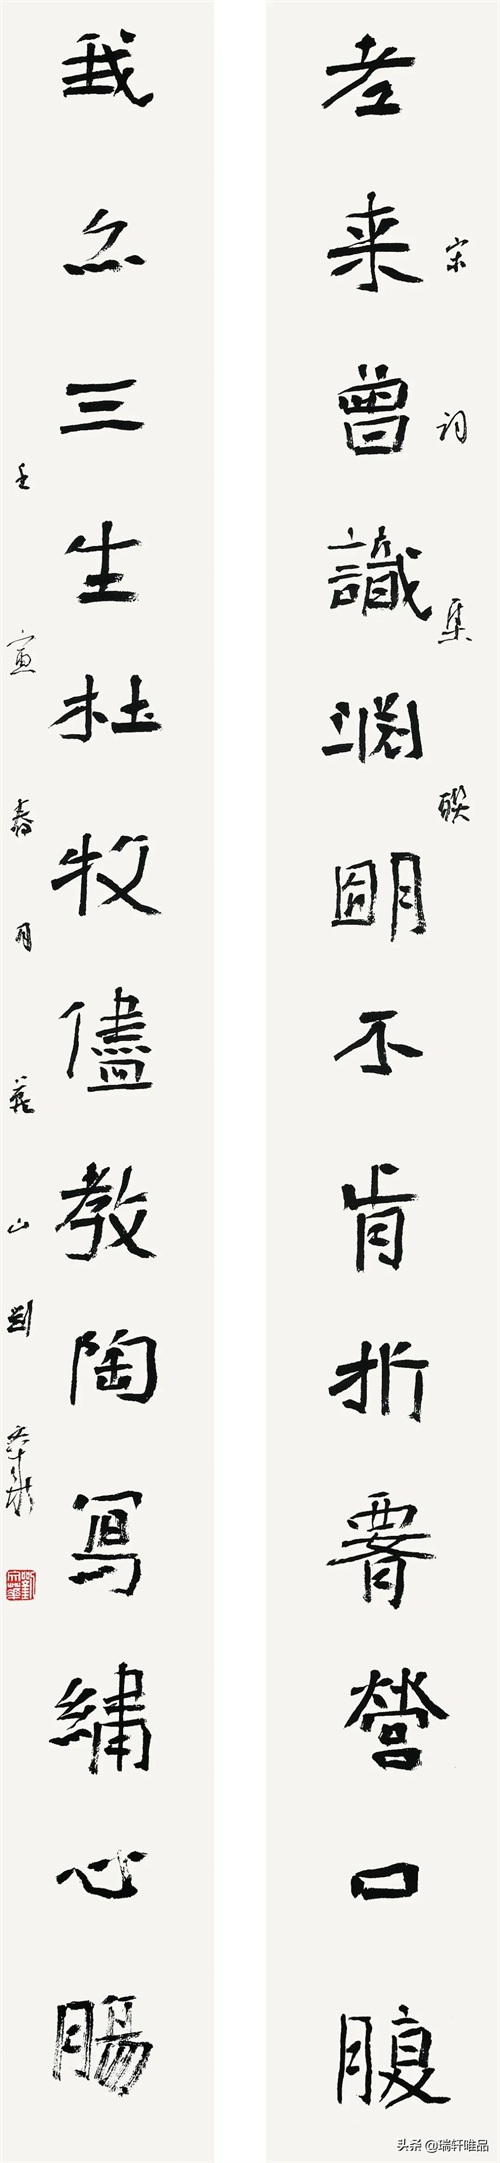 老来曾識淵明不肯折腰營口腹
宋詞集聯
我亦三生杜牧儘教陶寫繡心腸
壬寅春月燕山劉文華
头条 @瑞轩唯品